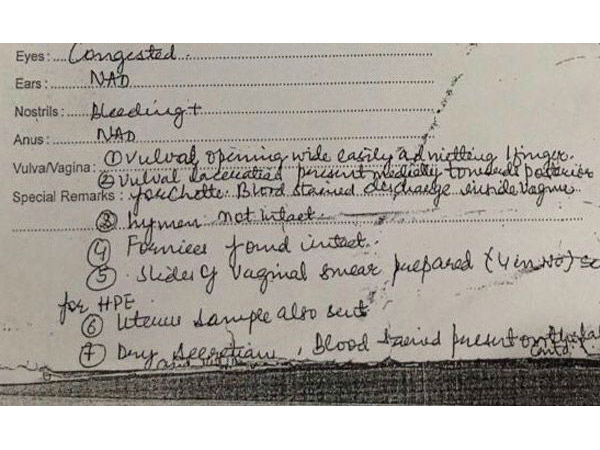 Eyes : Congested.
Ears : NAD
Nostrils : Bleeding +
Anus : NAD
Vulva/Vagina : ① Vulval opening wide easily admitting 1 finger.
② Vulval laceration present medially towards posterior
Special Remarks : forchette. Blood stained discharge inside vagina
③ hymen not intact.
④ Fornices found intact.
⑤ Slides of vaginal smear prepared (4 in No)
for HPE
⑥ Uterus sample also sent
⑦ Dry secretions, Blood stained present on